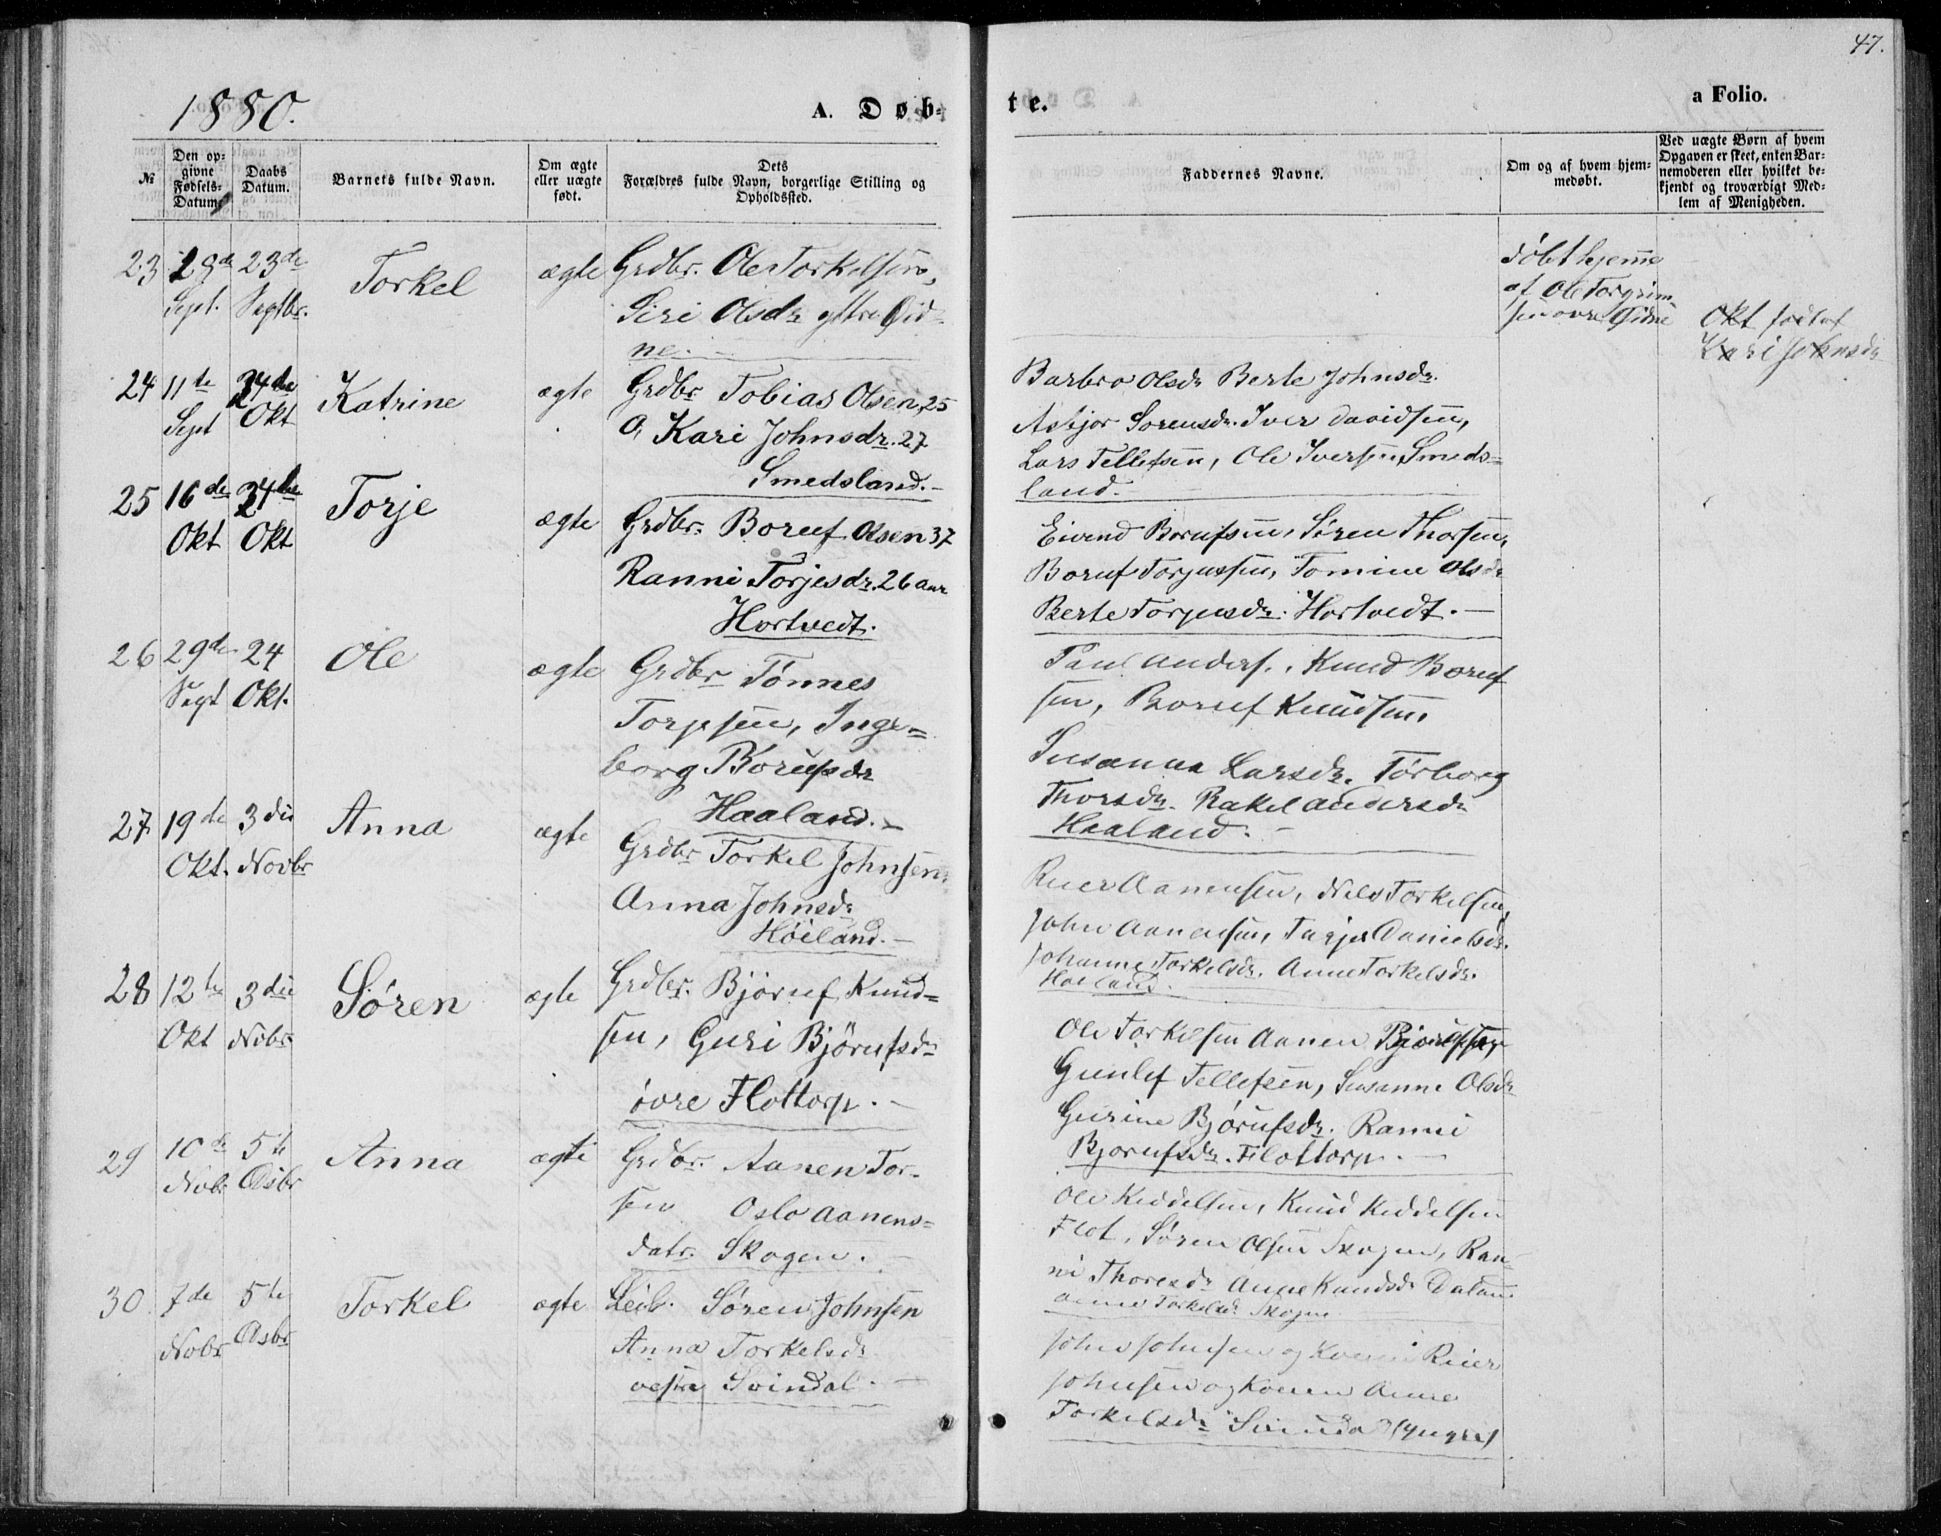 47.
1880.
A. Døb-
te.
a Folio.
№
Den op-
givne
Fødsels-
Datum.
Daabs
Datum.
Barnets fulde Navn.
Om ægte
eller uægte
født.
Dets
Forældres fulde Navn, borgerlige Stilling og
Opholdssted.
Faddernes Navne.
Om og af hvem hjem-
medøbt.
Ved uægte Børn af hvem
Opgaven er skeet, enten Bar-
nemoderen eller hvilket be-
kjendt og troværdigt Med-
lem af Menigheden.
23 18de 23de Torkel ægte Grdbr. Ole Torkelsen,
Sept. Septbr.
Siri Olsdr yttre Øid-
ne.
døbt hjemme
af Ole Torgrim-
sen øvre Øidne
Okt
Kari Johnsdr
24 11te 24de Katrine ægte Grdbr Tobias Olsen, 25
Sept Okt
O, Kari Johnsdr. 27
Smedsland.
Barbro Olsdr Berte Johnsdr.
Asbjor Sorensdr. Iver Davidsen,
Lars Tellefsen, Ole Iversen, Smeds-
land.
25 16de 24de Torje ægte Grdbr. Boruf Olsen 37
Okt Okt
Ranni Torjesdr. 26 aar
Hortvedt.
Eivend Borufsen, Søren Thorsen,
Boruf Torjussen, Tomine Olsdr
Berte Torjusdr. Hortvedt.
26 29de 24 Ole ægte Grdbr Tönnes
Sept Okt.
Torjesen, Inge-
borg Borufsdr
Haaland.
Paul Anders., Knud Boruf
sen, Boruf Knudsen,
Susanna Larsdr. Törborg
Thorsdr. Rakel Andersdr
Haaland.
27 19de 3die Anna ægte Grdbr Torkel Johnsen,
Okt. Novbr
Anna Johnsdr
Höiland.
Reier Aanensen, Nils Torkelsen,
John Aanensen, Danielsdr.
Johanne Torkelsdr. Anne Torkelsdr.
28 12te 3die Søren ægte Grdbr. Björuf Knud-
Okt Nvbr
sen, Guri Björufsdr
övre Flottorp.
Ole Torkelsen Aanen
Gunlef Tellefsen, Susanne Olsdr
Gurine Bjørufsdr. Ranni
Bjorufsdr. Flottorp.
29 10de 5te Anna ægte Grdbr. Aanen Tor-
Nvbr Dsbr
sen Oslo Aanens-
datr. Skogen.
Ole Keddelsen, Knud Keddelsen
Flot, Søren Olsen Skogen, Ran-
ni Thoresdr Anne Knudsdr
Anne Torkelsdr Skogen
30 7de 5te Torkel ægte Leil. Søren Johnsen
Nvbr Dsbr
Anna Torkelsdr
vestre Svindal.
John Johnsen og Konen Reier
Johnsen og Konen Anne
Torkelsdr